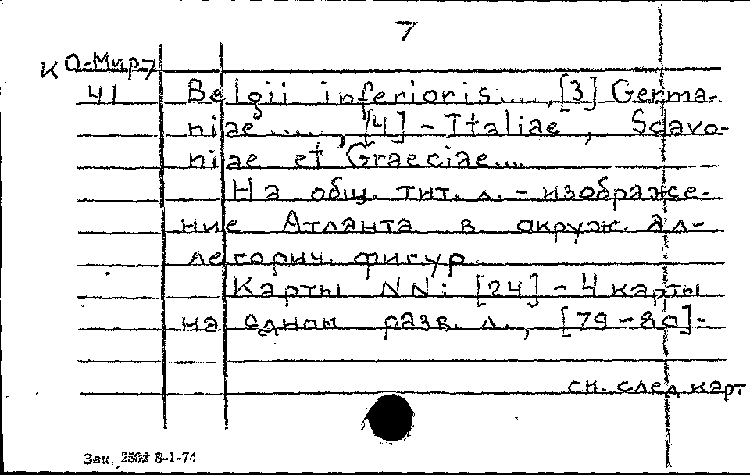 7
К О-Мир/7
41 Belgii inferioris...., [3] Germa-
niae....., [4] - Italiae, Sclavo-
niae et Graeciae....
На общ. тит. л. - изображе-
ние Атланта в окруж. ал-
легорич. фигур.
Карты NN: [24] - 4 карты
на одном разв. л., [79-80]-
см. след. карт
Зак. 8-1-71